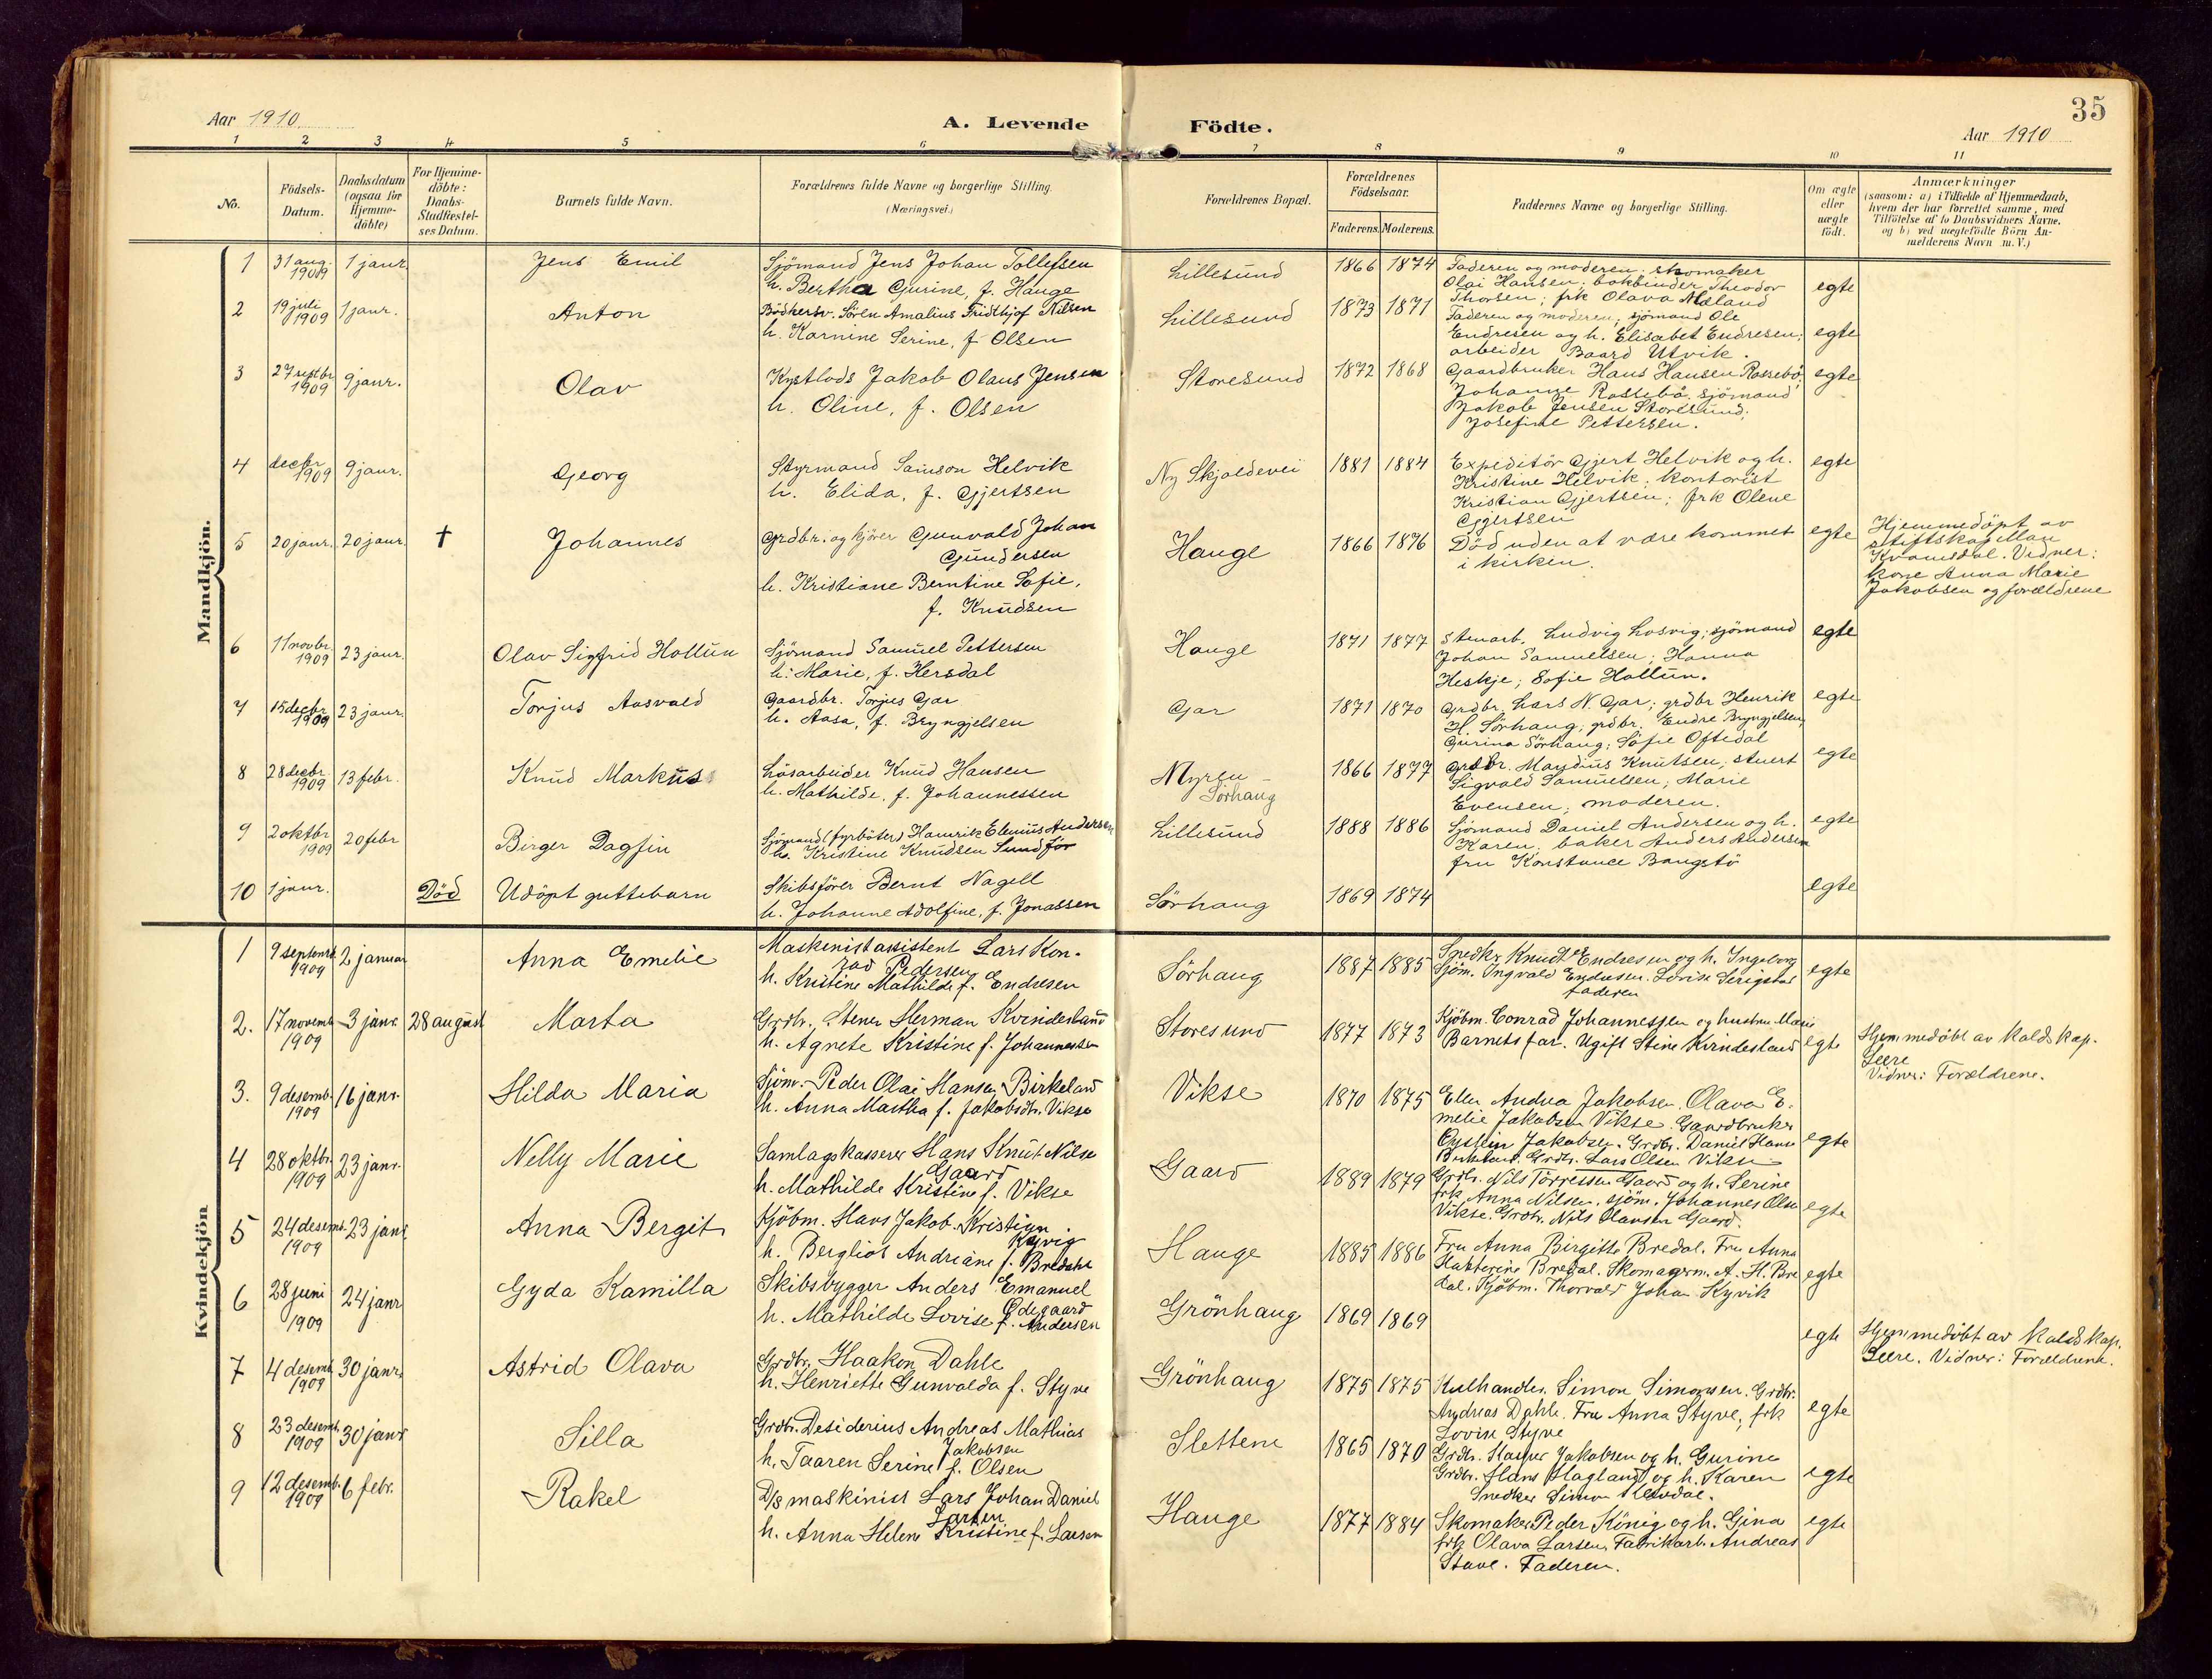 35
Aar 1910
A. Levende
Födte.
Aar 1910
1 2 3 4 5 6 7 8 9 10 11
No.
Födsels-
Datum.
Daabsdatum
(ogsaa for
Hjemme-
döbte)
For Hjemme-
döbte:
Daabs-
Stadfæstel-
ses Datum.
Barnets fulde Navn.
Forældrenes fulde Navne og borgerlige Stilling.
(Næringsvei.)
Forældrenes Bopæl.
Forældrenes
Födselsaar.
Faderens. Moderens.
Faddernes Navne og borgerlige Stilling.
Om ægte
eller
uægte
födt.
Anmærkninger
(saasom: a) i Tilfælde af Hjemmedaab,
hvem der har forrettet samme, med
Tilföielse af to Daabsvidners Navne,
og b) ved uægtefödte Börn An-
melderens Navn m. V.)
Mandkjön.
1 31 aug. 1909 1 janr. Jens Emil
Sjömand Jens Johan Tollefsen
h. Bertha Gurine, f. Hauge
Lillesund 1866 1874
Faderen og moderen; skomaker
Olai Hansen; bokbinder Theodor
Thorsen; frk Olava Mæland
egte
2 19 juli 1909 1 janr. Anton
Bödkersv. Sören Amalius Fridthjof Nilsen
h. Karnine Serine, f. Olsen
Lillesund 1873 1871
Faderen og moderen; sjömand Ole
Endresen og h. Elisabet Endresen;
arbeider Baard Utvik.
egte
3 27 septbr 1909 9 janr. Olav
Kystlods Jakob Olaus Jensen
h. Oline, f. Olsen
Storesund 1872 1868
Gaardbruker Hans Hansen Rossebö;
Johanne Rossebö; sjömand
Jakob Jensen Storesund;
Josefine Pettersen.
egte
4 decbr 1909 9 janr. Georg
Styrmand Samson Helvik
h. Elida, f. Gjertsen
Ny Skjoldevei 1881 1884
Expeditör Gjert Helvik og h.
Kristine Helvik; kontorist
Kristian Gjertsen; frk Olene
Gjertsen
egte
5 20 janr. 20 janr. † Johannes
Grdbr. og kjörer Gunvald Johan
Gundersen
h. Kristiane Berntine Sofie,
f. Knudsen
Hauge 1866 1876
Död uden at være kommet
i kirken.
egte
Hjemmedöpt av
stiftskapellan
Kvamsdal. Vidner:
kone Anna Marie
Jakobsen og forældrene
6 11 novbr. 1909 23 janr. Olav Sigfrid Hollun
Sjömand Samuel Pettersen
h. Marie, f. Hersdal
Hauge 1871 1877
Stenarb. Ludvig Losvig; sjömand
Johan Samuelsen; Hanna
Heskje; Sofie Hollun.
egte
7 15 decbr 1909 23 janr. Torjus Aasvald
Gaardbr. Torjus Gar
h. Aasa, f. Bryngjelsen
Gar 1871 1870
Grdbr. Lars N. Gar; grdbr Henrik
H. Sörhaug; grdbr. Endre Bryngjelsen;
Gurina Sörhaug; Sofie Oftedal
egte
8 28 decbr. 1909 13 febr. Knud Markus
Lösarbeider Knud Hansen
h. Mathilde, f. Johannessen
Myren –
Sörhaug 1866 1877
Grdbr. Mandius Knutsen; stuert
Sigvald Samuelsen; Marie
Evensen; moderen.
egte
9 2 oktbr 1909 20 febr Birger Dagfin
Sjömand (fyrböter) Hamrik Elenius Andersen
h. Kristine Knudsen Sundför
Lillesund 1888 1886
Sjömand Daniel Andersen og h.
Karen; baker Anders Andersen
fru Konstance Bangstö
egte
10 1 janr. Död Udöpt guttebarn
Skibsförer Bernt Nagell
h. Johanne Adolfine, f. Jonassen
Sörhaug 1869 1874
egte
Kvindekjön
1 9 septemb. 1909 2 januar Anna Emelie
Maskinistassistent Lars Kon-
rad Pedersen
h. Kristine Mathilde f. Endresen
Sörhaug 1887 1885
Snedkr. Knudt Endresen og h. Ingeborg
Sjöm. Ingvald Endresen. Lovise Serigstad
faderen
egte
2. 17 novemb. 1909 3 janr. 28 august Marta
Grdbr. Stener Herman Kvindesland
h. Agnete Kristine f. Johannessen
Storesund 1877 1873
Kjöbm. Conrad Johannessen og hustru Marie
Barnets far. Ugift Stine Kvindesland
egte
Hjemmedöbt av Kalds kap.
Seere
Vidner: Forældrene.
3. 9 desemb. 1909 16 janr. Hilda Maria
Sjöm. Peder Olai Hansen Birkeland
h. Anna Martha f. Jakobsdtr. Vikse
Vikse 1870 1875
Ellen Andrea Jakobsen. Olava E-
melie Jakobsen Vikse. Gaardbruker
Oystein Jakobsen. Grdbr. Daniel Hansen
Birkeland. Grdbr. Lars Olsen Vikse
egte
4 28 oktbr. 1909 23 janr. Nelly Marie
Samlagskasserer Hans Knut Nilsen
Gaard
h. Mathilde Kristine f. Vikse
Gaard 1889 1879
Grdbr. Nils Törressen Gaard og h. Serine
frk Anna Nilsen, sjöm. Johannes Olsen
Vikse. Grdbr. Nils Olausen Gaard.
egte
5 24 desemb. 1909 23 janr. Anna Bergit
Kjöbm. Hans Jakob Kristian
Kyvig
h. Bergliot Andriane f. Bredahl
Hauge 1885 1886
Fru Anna Birgitte Bredal. Fru Anna
Katterine Bredal. Skomagerm. A. H. Bre
dal. Kjöbm. Thorvald Johan Kyvik
egte
6 28 juni 1909 24 janr Gyda Kamilla
Skibsbygger Anders Emanuel
Ödegaard
h. Mathilde Lovise f. Andersen
Grönhaug 1869 1869
egte
Hjemmedöbt av Kalds kap.
Seere. Vidner: Forældrene.
7 4 desemb. 1909 30 janr. Astrid Olava
Grdbr. Haakon Dahle
h. Henriette Gunvalda f. Styve
Grönhaug 1875 1875
Kulhandler. Simon Simonsen. Grdbr.
Andreas Dahle. Fru Anna Styve, frk
Lovise Styve
egte
8 23 desemb. 1909 30 janr Silla
Grdbr. Desiderius Andreas Mathias
Jakobsen
h. Taaren Serine f. Olsen
Slettene 1865 1870
Grdbr. Kasper Jakobsen og h. Gurine
Grdbr. Hans Hagland og h. Karen
Snedker Simon
egte
9 12 desemb. 1909 6 febr. Rakel
D/s maskinist Lars Johan Daniel
Larsen
h. Anna Helene Kristine f. Larsen
Hauge 1877 1884
Skomaker Peder König og h. Gjina
frk Olava Larsen, Fabrikarb. Andreas
Stave. Faderen.
egte